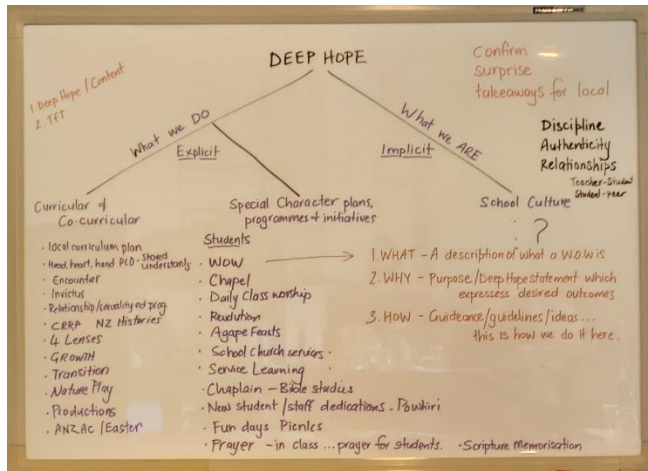 DEEP HOPE
1. Deep Hope / Content
2. TFT
Confirm
surprise
takeaways for local
What we DO
Explicit
What we ARE
Implicit
Discipline
Authenticity
Relationships
Teacher-Student
Student-peer
Curricular &
Co-curricular
· local curriculum plan
· Head, heart, hand PCD - shared
understandg
· Encounter
· Invictus
· Relationship/sexuality ed prog
· CRRP NZ Histories
· 4 Lenses
· GROWTH
· Transition
· Nature Play
· Productions
· ANZAC / Easter
Special Character plans,
programmes + initiatives
Students
· WOW
· Chapel
· Daily Class worship
· Agape Feasts
· School Church services
· Service Learning
· Chaplain - Bible studies
· New student / staff dedications - Powhiri
· Fun days Picnics
· Prayer - in class ... prayer for students.
· Scripture Memorisation
School Culture
?
1. WHAT - A description of what a W.O.W is
2. WHY - Purpose/Deep Hope statement which
expressess desired outcomes
3. HOW - Guideance/guidelines/ideas...
this is how we do it here.